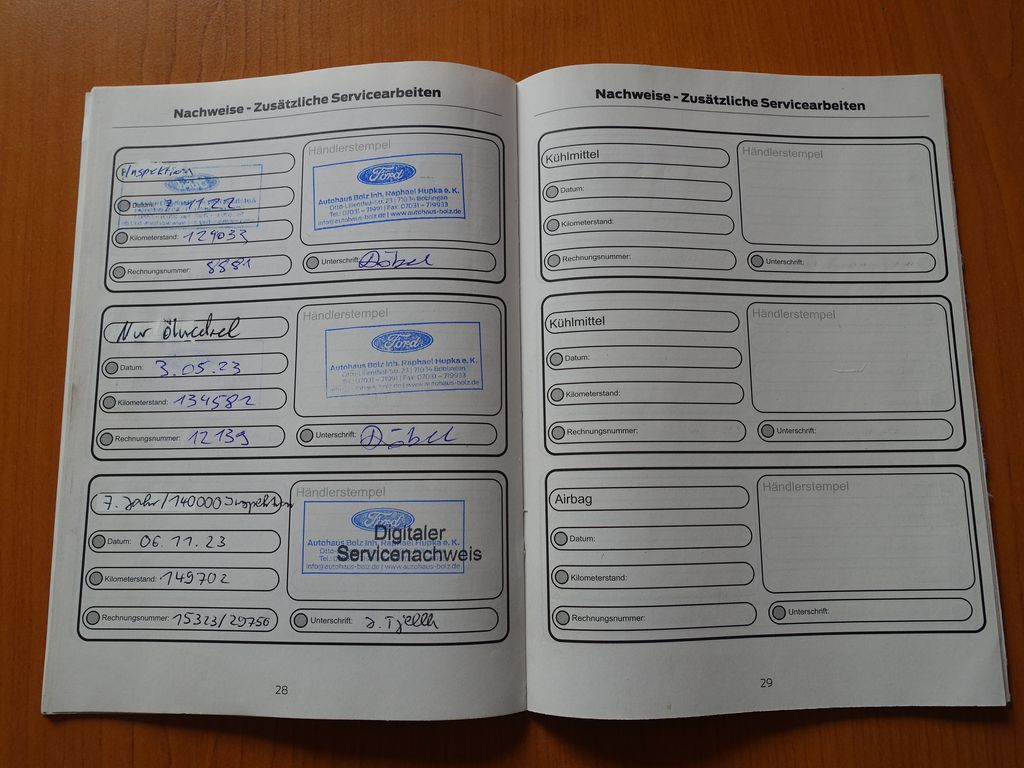 Nachweise - Zusätzliche Servicearbeiten
Inspektion
Datum: 7. 11. 22
Kilometerstand: 129033
Rechnungsnummer: 8881
Händlerstempel
Ford
Autohaus Bolz Inh. Raphael Hupka e. K.
Otto-Lilienthal-Str. 23 | 71034 Böblingen
Tel.: 07031 – 71991 | Fax: 07031 – 719933
info@autohaus-bolz.de | www.autohaus-bolz.de
Unterschrift:
Nur Ölwechsel
Datum: 3.05.23
Kilometerstand: 134582
Rechnungsnummer: 12139
Händlerstempel
Ford
Autohaus Bolz Inh. Raphael Hupka e. K.
Otto-Lilienthal-Str. 23 | 71034 Böblingen
Tel.: 07031 – 71991 | Fax: 07031 – 719933
info@autohaus-bolz.de | www.autohaus-bolz.de
Unterschrift:
7. Jahr/140000 Inspektion
Datum: 06. 11. 23
Kilometerstand: 149702
Rechnungsnummer: 15323/29756
Händlerstempel
Ford
Autohaus Bolz Inh. Raphael Hupka e. K.
Digitaler
Servicenachweis
info@autohaus-bolz.de | www.autohaus-bolz.de
Unterschrift:
28
Nachweise - Zusätzliche Servicearbeiten
Kühlmittel
Datum:
Kilometerstand:
Rechnungsnummer:
Händlerstempel
Unterschrift:
Kühlmittel
Datum:
Kilometerstand:
Rechnungsnummer:
Händlerstempel
Unterschrift:
Airbag
Datum:
Kilometerstand:
Rechnungsnummer:
Händlerstempel
Unterschrift:
29